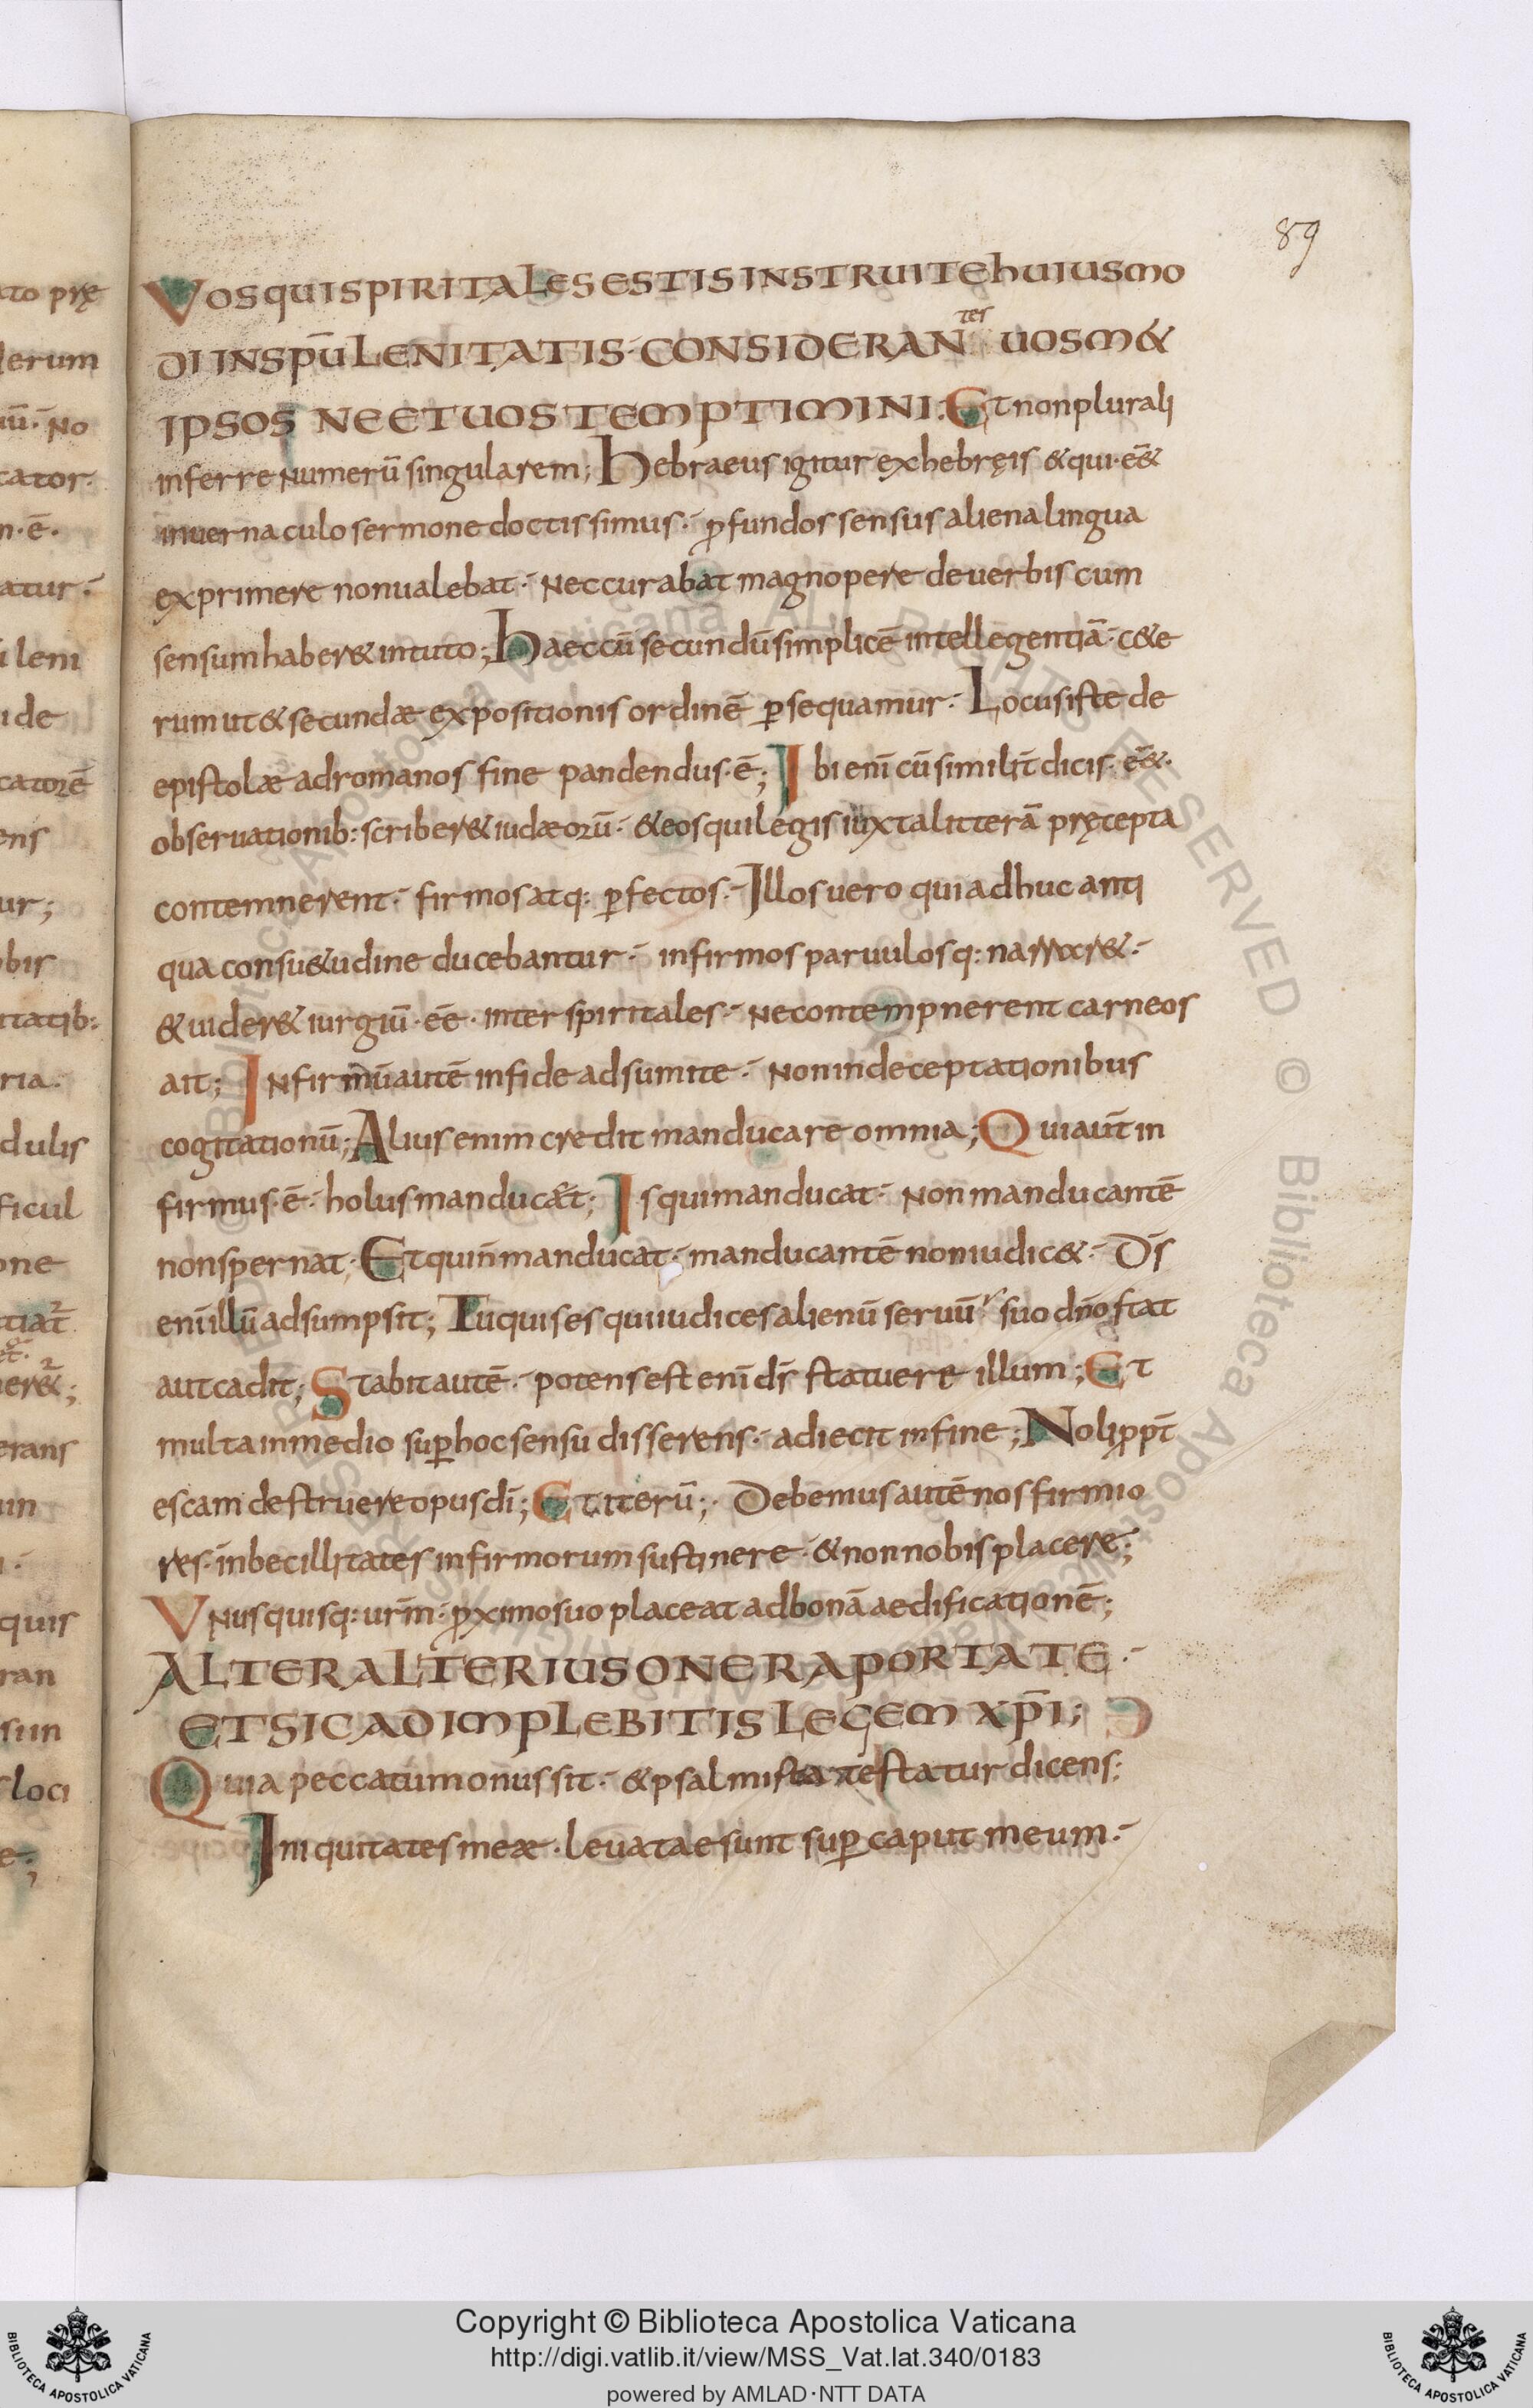 89
VOS QUI SPIRITALES ESTIS INSTRUITE HUIUSMO
DI IN SPŪ LENITATIS· CONSIDERANtes UOSM&
IPSOS NE ET UOS TEMPTIMINI. Et non plurali
inferre numerū singularem; Hebraeus igitur ex hebręis & qui· eē&
in uernaculo sermone doctissimus· ꝓfundos sensus aliena lingua
exprimere non ualebat· nec curabat magnopere de uerbis cum
sensum haber& in tuto; Haec cū secundū simplicē intellegentiā· c&e
rum ut & secundæ expositionis ordinē ꝑsequamur· Locus iste de
epistolæ ad romanos fine pandendus· ē; Ibi enī cū similit̄ dicis· eē&·
obseruationib: scriber& iudæorū· & eos qui legis iuxta litterā pręcepta
contemnerent· firmos atq: ꝑfectos· Illos uero qui adhuc anti
qua consu&udine ducebantur· infirmos paruulosq: narrar&·
& uider& iurgiū· eē· inter spiritales· ne contempnerent carneos
ait; Infirmū autē in fide adsumite· non in deceptationibus
cogitationū; Alius enim credit manducare omnia; Qui aut̄ in
firmus· ē· holus manducat; Is qui manducat· non manducantē
non spernat; Et qui n̄ manducat· manducantē non iudic&· D̄s
enī illū adsumpsit; Tu quis es qui iudices alienū seruū suo dn̄o stat
aut cadit; Stabit autē· potens est enī d̄s statuere illum; Et
multa in medio suꝑ hoc sensu disserens· adiecit in fine; Noli ꝓpt̄
escam destruere opus dī; Et iterū;· Debemus autē nos firmio
res· inbecillitates infirmorum sustinere· & non nobis placere;
Vnusquisq: ur̄m· ꝓximo suo placeat ad bonā aedificationē;
ALTER ALTERIUS ONERA PORTATE·
ET SIC ADIMPLEBITIS LEGEM XP̄I;
Quia peccatum onus sit· & psalmista testatur dicens:
Iniquitates meæ· leuatae sunt suꝑ caput meum·
Copyright © Biblioteca Apostolica Vaticana
http://digi.vatlib.it/view/MSS_Vat.lat.340/0183
powered by AMLAD·NTT DATA
BIBLIOTECA APOSTOLICA VATICANA
BIBLIOTECA APOSTOLICA VATICANA